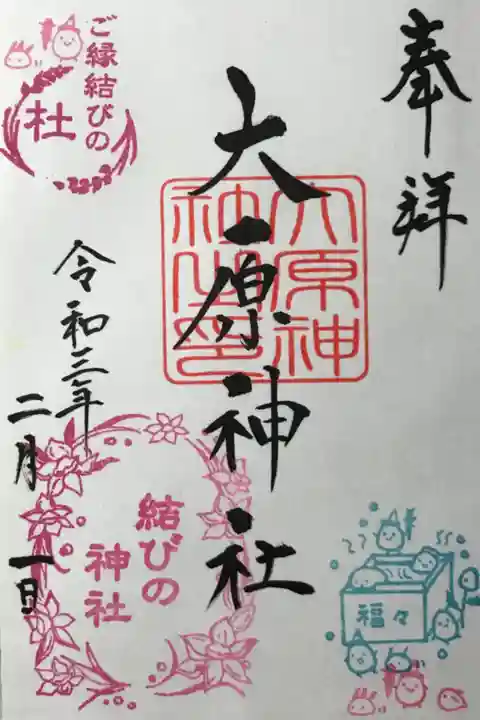 奉拝
大原神社
大原神
社之印
ご縁結びの
杜
令和三年
二月一日
結びの
神社
福々